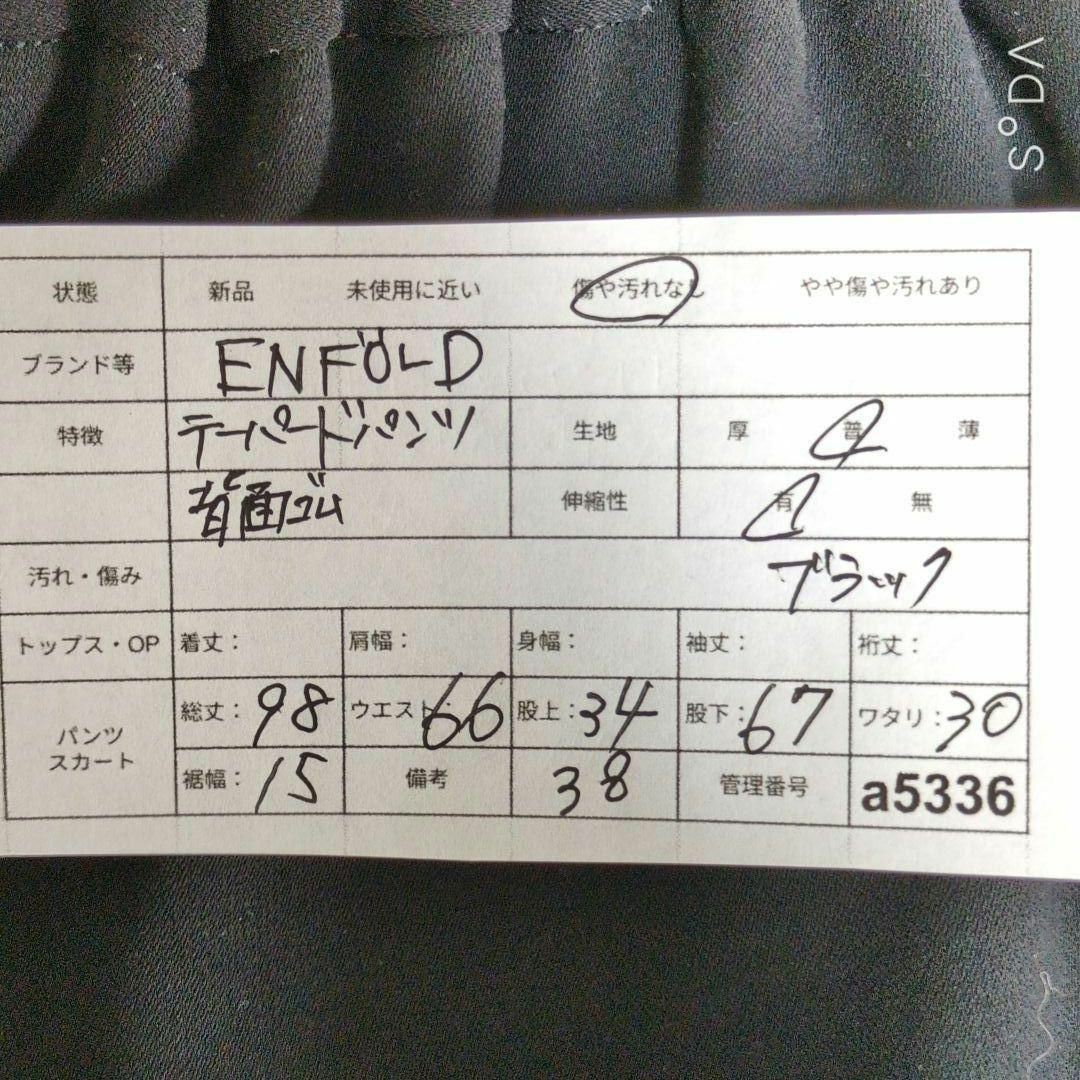 VD°S
状態 新品 未使用に近い 傷や汚れなし やや傷や汚れあり
ブランド等 ENFÖLD
特徴 テーパードパンツ 生地 厚 普 薄
背面ゴム 伸縮性 有 無
汚れ・傷み ブラック
トップス・OP 着丈: 肩幅: 身幅: 袖丈: 裄丈:
パンツ スカート 総丈:98 ウエスト:66 股上:34 股下:67 ワタリ:30
裾幅:15 備考 38 管理番号 a5336